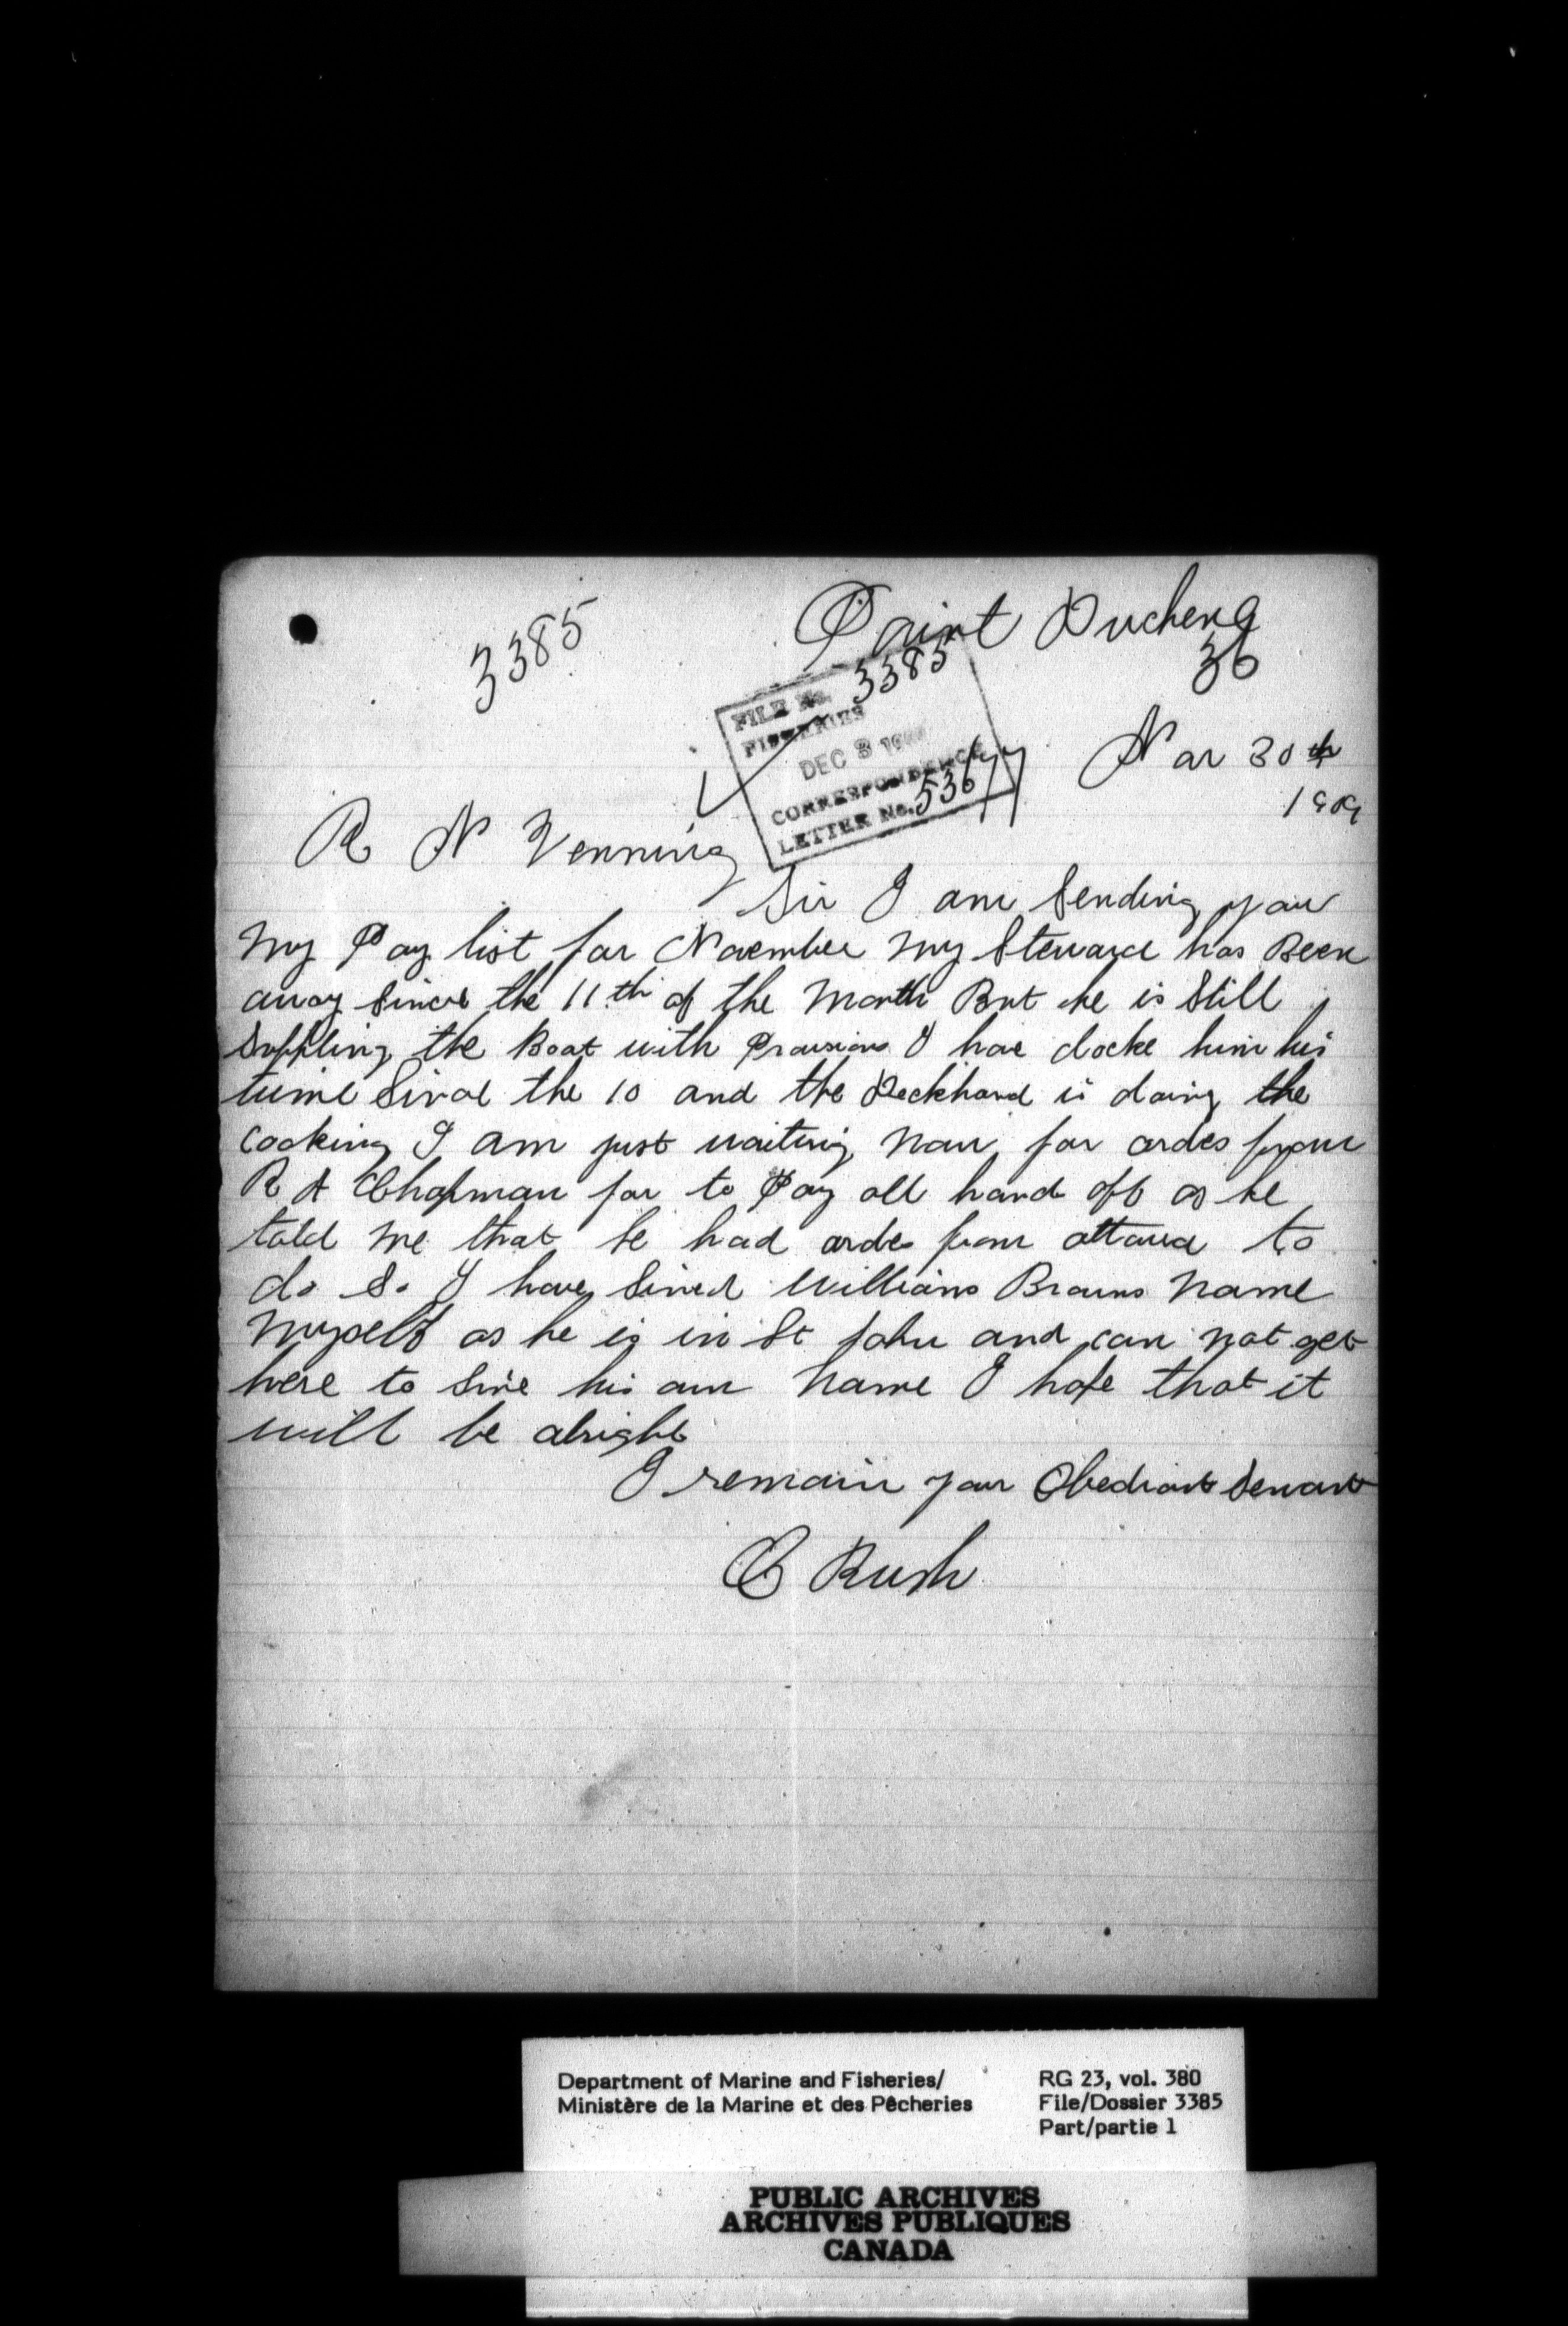 Point Ducheng
36
3385
FILE No. 3385
FISHERIES
DEC 3
CORRESPONDENCE
LETTER No. 53677
Nov 30th
1909
R N Venning
Sir I am Sending you
My Pay list for November My Steward has Been
away Since the 11th of the Month But he is Still
Suppling the Boat with Provisions I have docke him his
time Since the 10 and the Deckhand is doing the
Cooking I am just waiting now for ordes from
R A Chapman for to Pay all hand off as he
told me that he had ordes from ottawa to
do So I have Sined Williams Browns Name
Myself as he is in St John and can not get
here to Sine his own Name I hope that it
will be alright
I remain your Obediant Servant
C Rush
Department of Marine and Fisheries/
Ministère de la Marine et des Pêcheries
RG 23, vol. 380
File/Dossier 3385
Part/partie 1
PUBLIC ARCHIVES
ARCHIVES PUBLIQUES
CANADA